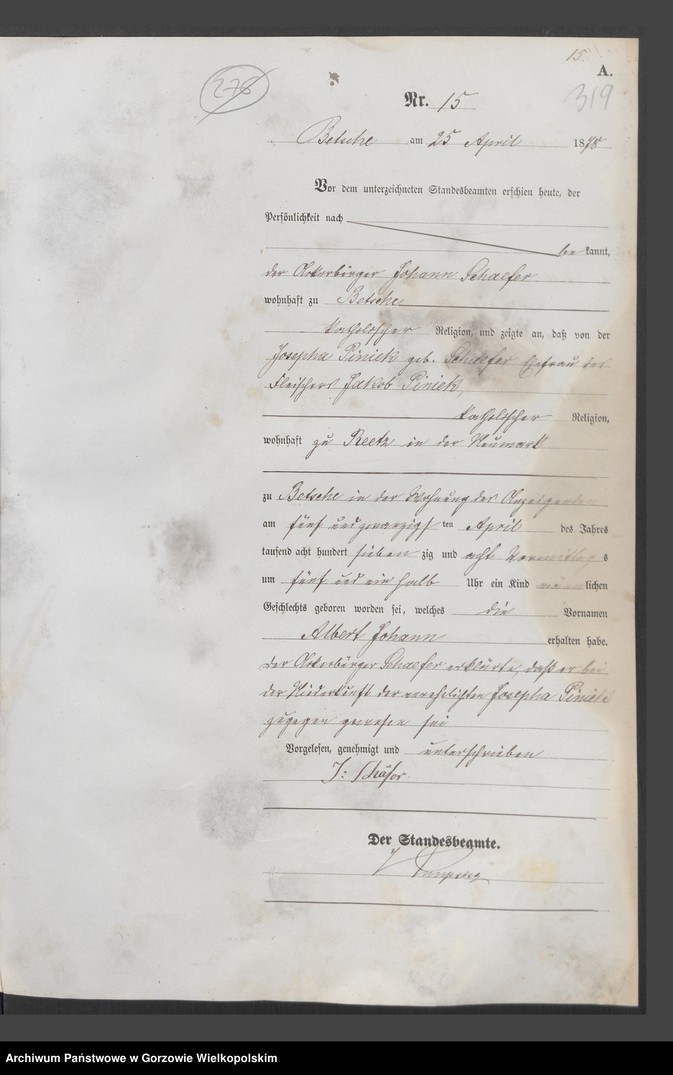 15.
A.
278
319
Nr. 15
Betsche am 25 April 1878
Vor dem unterzeichneten Standesbeamten erschien heute, der
Persönlichkeit nach
be kannt,
der Ackerbürger Johann Schaefer
wohnhaft zu Betsche
katholischer Religion, und zeigte an, daß von der
Josepha Piniek geb. Schaefer Ehefrau des
Fleischers Jakob Piniek,
katholischer Religion,
wohnhaft zu Reetz in der Neumark
zu Betsche in der Wohnung des Anzeigenden
am fünf und zwanzigs ten April des Jahres
tausend acht hundert sieben zig und acht Vormittag s
um fünf und ein halb Uhr ein Kind männ lichen
Geschlechts geboren worden sei, welches die Vornamen
Albert Johann erhalten habe.
Der Ackerbürger Schaefer erklärte, daß er bei
der Niederkunft der verehelichten Josepha Piniek
zugegen gewesen sei
Vorgelesen, genehmigt und unterschrieben
J: Schäfer.
Der Standesbeamte.
Archiwum Państwowe w Gorzowie Wielkopolskim